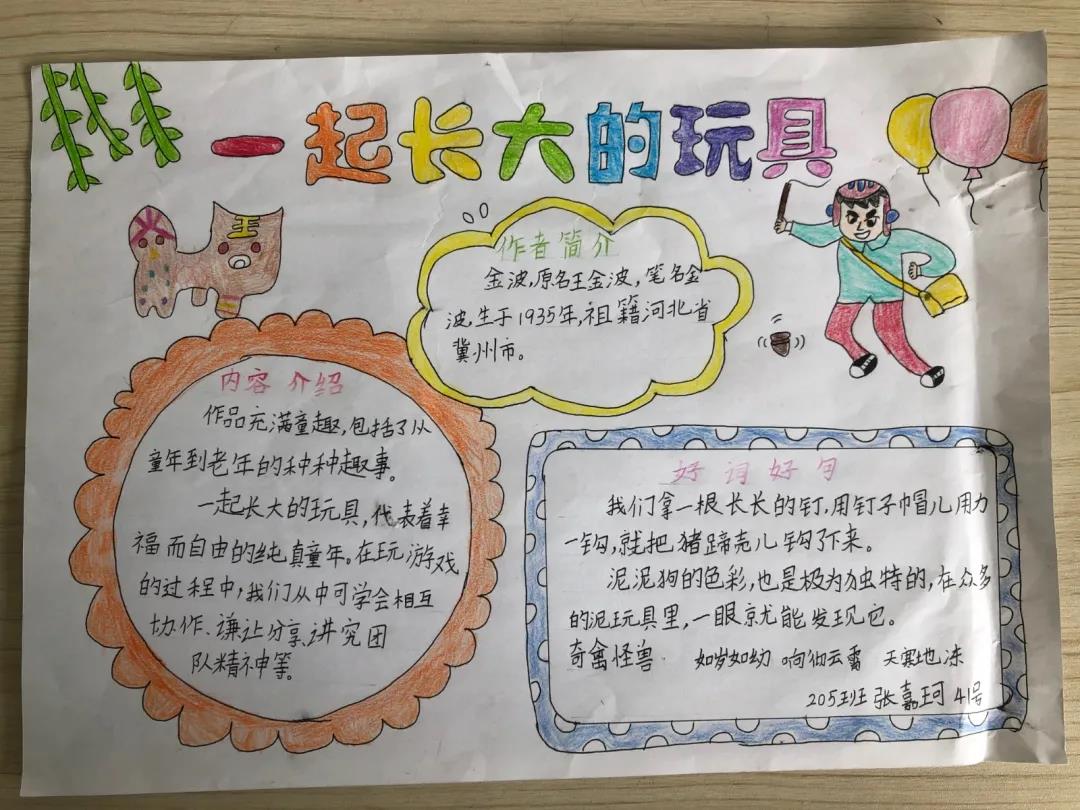 一起长大的玩具
作者简介
金波,原名王金波,笔名金
波,生于1935年,祖籍河北省
冀州市。
内容介绍
作品充满童趣,包括了从
童年到老年的种种趣事。
一起长大的玩具,代表着幸
福而自由的纯真童年。在玩游戏
的过程中,我们从中可学会相互
协作、谦让分享、讲究团
队精神等。
好词好句
我们拿一根长长的钉,用钉子帽儿用力
一钩,就把猪蹄壳儿钩了下来。
泥泥狗的色彩,也是极为独特的,在众多
的泥玩具里,一眼就能发现它。
奇禽怪兽 如岁如幼 响彻云霄 天寒地冻
205班 张嘉珂 41号
王